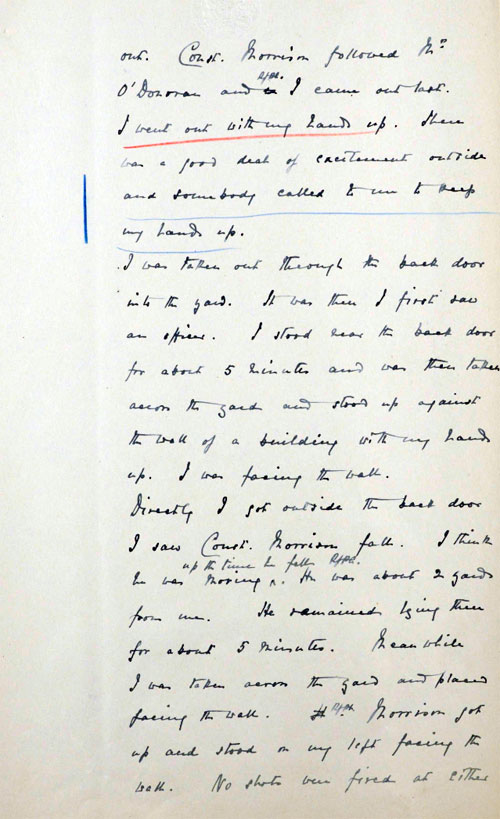 out. Const. Morrison followed Mr
O'Donovan and I came out last.
I went out with my hands up. There
was a good deal of excitement outside
and somebody called to me to keep
my hands up.
I was taken out through the back door
into the yard. It was then I first saw
an officer. I stood near the back door
for about 5 minutes and was then taken
across the yard and stood up against
the wall of a building with my hands
up. I was facing the wall.
Directly I got outside the back door
I saw Const. Morrison fall. I think
up the time he fell
he was moving ^. He was about 2 yards
from me. He remained lying there
for about 5 minutes. Meanwhile
I was taken across the yard and placed
facing the wall. Morrison got
up and stood on my left facing the
wall. No shots were fired at either